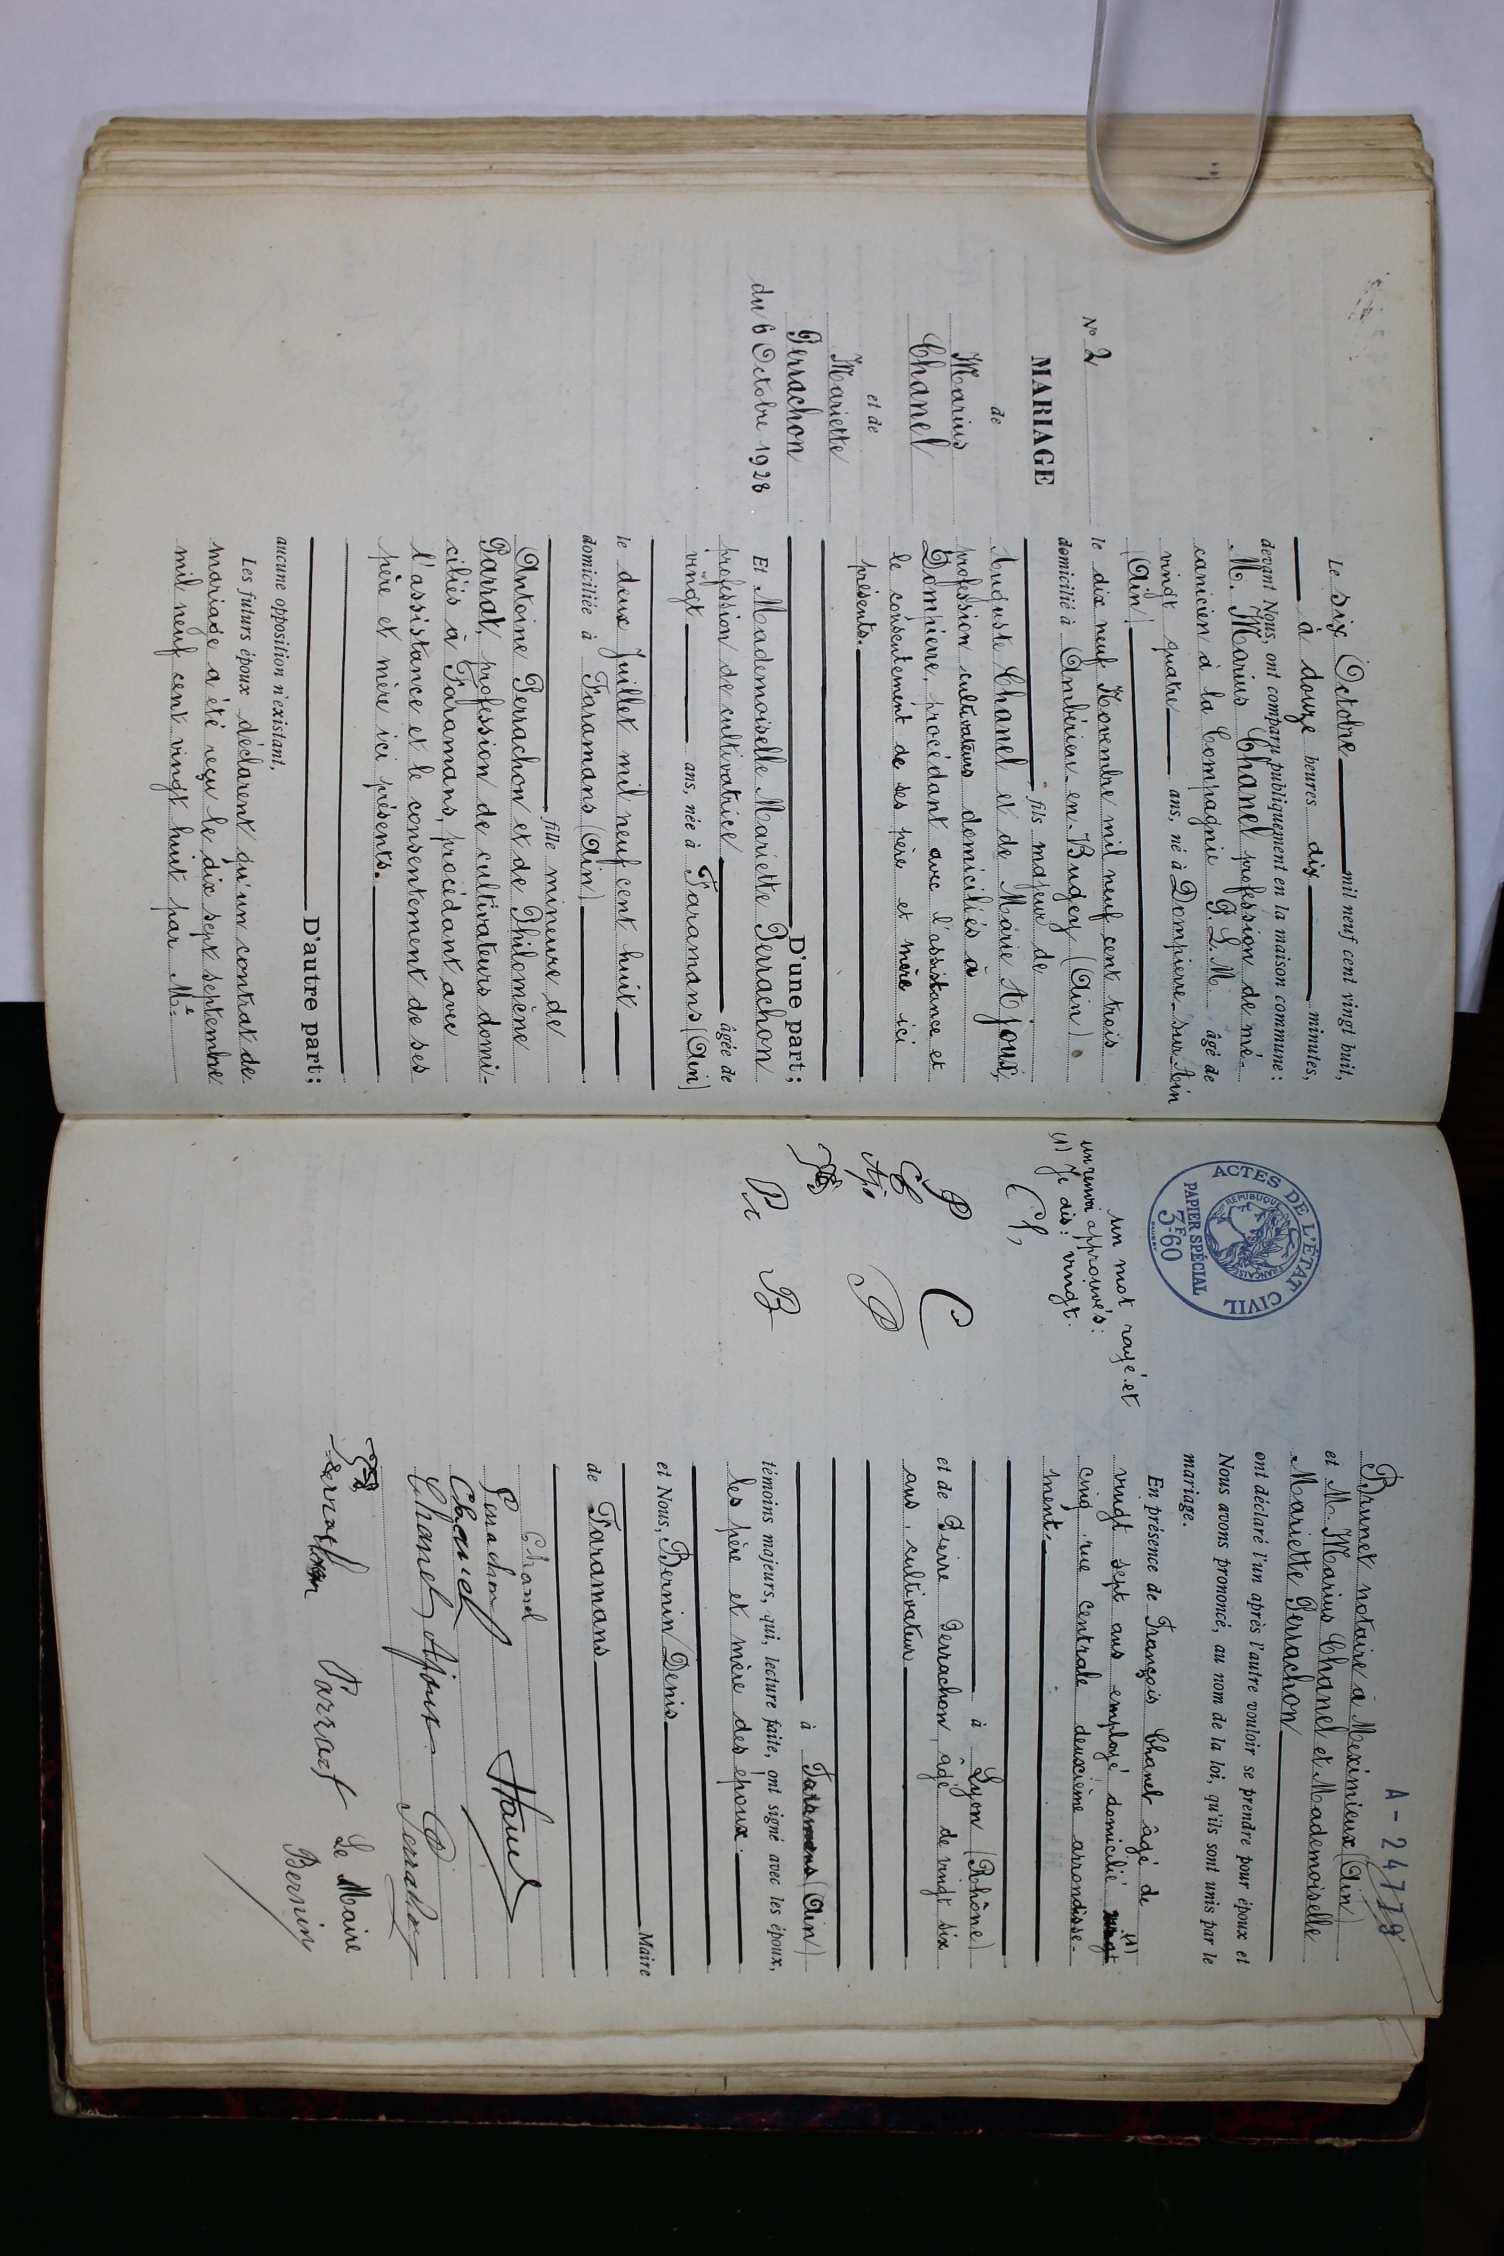 N° 2
MARIAGE
de
Marius
Chanel
et de
Mariette
Perrachon
du 6 Octobre 1928
Le six Octobre mil neuf cent vingt huit,
à douze heures dix minutes,
devant Nous, ont comparu publiquement en la maison commune :
M. Marius Chanel profession de mé-
canicien à la Compagnie P. L. M. âgé de
vingt quatre ans, né à Dompierre-sur-Ain
(Ain)
le dix neuf Novembre mil neuf cent trois
domicilié à Ambérieu-en-Bugey (Ain)
fils majeur de
Auguste Chanel et de Marie Ajoux,
profession cultivateurs domiciliés à
Dompierre, procédant avec l'assistance et
le consentement de ses père et mère ici
présents.
D'une part ;
Et Mademoiselle Mariette Perrachon
profession de cultivatrice âgée de
vingt ans, née à Faramans (Ain)
le deux Juillet mil neuf cent huit
domiciliée à Faramans (Ain)
fille mineure de
Antoine Perrachon et de Philomène
Parrat, profession de cultivateurs domi-
ciliés à Faramans, procédant avec
l'assistance et le consentement de ses
père et mère ici présents.
D'autre part ;
aucune opposition n'existant,
Les futurs époux déclarent qu'un contrat de
mariage a été reçu le dix sept septembre
mil neuf cent vingt huit par Me
A - 24779
ACTES DE L'ÉTAT CIVIL
RÉPUBLIQUE FRANÇAISE
PAPIER SPÉCIAL
3F60
un mot rayé et
un renvoi approuvés :
(1) Je dis : vingt.
Ch,
P C
C
Ajo P
Pt B
Brunet notaire à Meximieux (Ain)
et M. Marius Chanel et Mademoiselle
Mariette Perrachon
ont déclaré l'un après l'autre vouloir se prendre pour époux et
Nous avons prononcé, au nom de la loi, qu'ils sont unis par le
mariage.
En présence de François Chanel âgé de
vingt sept ans employé domicilié vingt (1)
cinq rue centrale deuxième arrondisse-
ment.
à Lyon (Rhône)
et de Pierre Perrachon, âgé de vingt six
ans, cultivateur
à Faramans (Ain)
témoins majeurs, qui, lecture faite, ont signé avec les époux,
les père et mère des époux.
et Nous, Bernin Denis
Maire
de Faramans
Chanel
Perrachon Chanel
Chanel
Chanel Ajoux P Perrachon
Perrachon Parrat Le Maire
Bernin